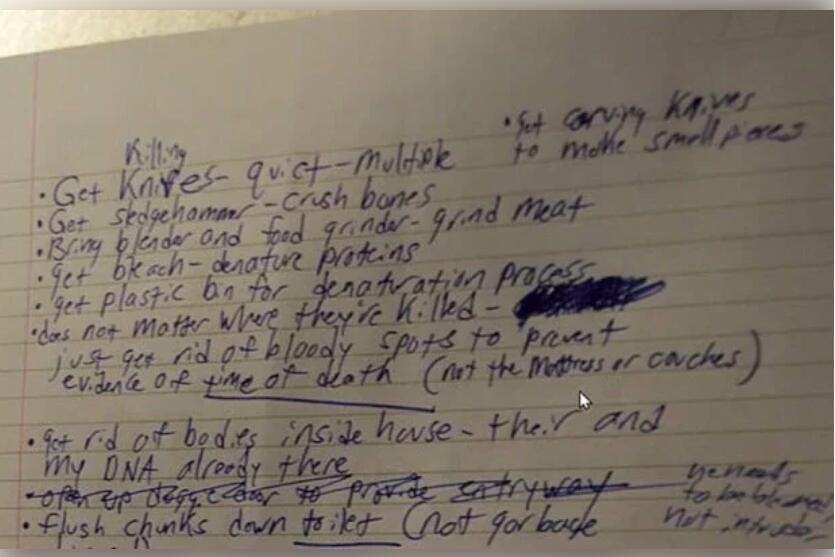 Killing
• Get Knives - quiet - multiple
• Get carving knives
to make small pieces
• Get sledgehammer - crush bones
• Bring blender and food grinder - grind meat
• get bleach - denature proteins
• get plastic bin for denaturation process
• does not matter where they're killed -
just get rid of bloody spots to prevent
evidence of time of death (not the mattress or couches)
• get rid of bodies inside house - their and
my DNA already there
• open up door to provide entryway
he needs
to be
not
• flush chunks down toilet (not garbage